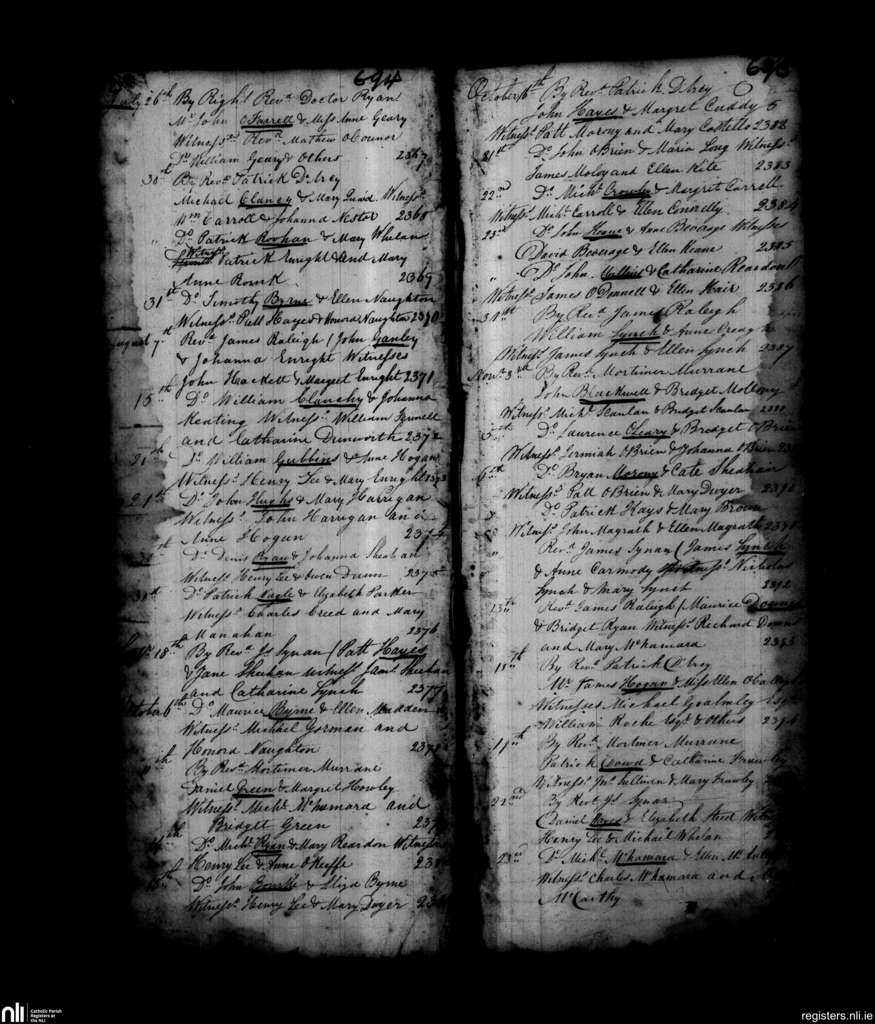 694
July 26th By Right Revd. Doctor Ryan
Mr. John O'Farrell & Miss Anne Geary
Witnesss. Revd. Mathew O'Connor
Dr. William Geary & Others 2367
30th By Revd. Patrick Delrey
Michael Clancy & Mary Quaid Witness.
Wm. Carroll & Johanna Nestor 2368
" Do. Patrick Roohan & Mary Whelan
Witness. Patrick Enright and Mary
Anne Rourk 2369
31st Do. Timothy Byrne & Ellen Naughton
Witness. Patt Hayes & Honora Naughton 2370
August 7th Revd. James Raleigh / John Ganley
& Johanna Enright Witnesses
John Hackett & Margret Enright 2371
15th Do. William Clanchy & Johanna
Keating Witness. William Fennell
and Catharine Dunworth 2372
21th Do. William Gubbins & Anne Hogan
Witness. Henry Lee & Mary Enright 2373
Do. John Hughs & Mary Harrigan
Witness. John Harrigan and
Anne Hogan 2374
Do. Denis Ryan & Johanna Sheahan
Witness. Henry Lee & Owen Dunn 2375
31st Do. Patrick Nagle & Elizabeth Parker
Witness. Charles Creed and Mary
Manahan 2376
18th By Revd. Js. Synan / Patt Hayes
& Jane Sheehan witness. James Sheehan
and Catharine Lynch 2377
October 6th Do. Maurice Byrne & Ellen Madden
Witness. Michael Gorman and
Honora Naughton
By Revd. Mortimer Murrane
Daniel Green & Margret Howley
Witness. Michl. McNamara and
Bridgett Green
Do. Michl. Ryan & Mary Reardon Witness
Henry Lee & Anne O'Keeffe
Do. John Bourke & Eliza Byrne
Witness. Henry Lee & Mary Dwyer
October 16th By Revd. Patrick Delrey
John Hayes & Margret Cuddy
Witness. Patt Morony and Mary Costello 2382
21st Do. John OBrien & Maria Long Witness.
James Moloy and Ellen Kite 2383
22nd Do. Michl. Crowly & Margret Carroll
Witness. Michl. Carroll & Ellen Connelly. 2384
Do. John Keane & Anne Beverage Witnesses
David Beverage & Ellen Keane 2385
" Do. John Mullins & Catharine Reardon
Witness. James O'Donnell & Ellen Hair 2386
31st By Revd. James Raleigh
William Lynch & Anne Creagh
Witness. James Lynch & Ellen Lynch 2387
Novr. 3rd By Revd. Mortimer Murrane
John Blackwell & Bridget Molony
Witness. Michl. Scanlan & Bridget Scanlan
5th Do. Laurence Cleary & Bridget OBrien
Witness. Jermiah OBrien & Johanna OBrien
6th Do. Bryan Morony & Cate Sheahan
Witness. Patt OBrien & Mary Dwyer
Do. Patrick Hays & Mary Brown
Witness. John Magrath & Ellen Magrath
" Revd. James Synan / James Lynch
& Anne Carmody Witness. Nicholas
Lynch & Mary Lynch 2392
13th Revd. James Raleigh / Maurice Downes
& Bridget Ryan Witness. Richard Downs
and Mary McNamara 2393
18th By Revd. Patrick Delrey
Mr. James Hogan & Miss Ellen
Witnesses Michael Goalmley Esqr.
William Roche Esqr. & Others
19th By Revd. Mortimer Murrane
Patrick Dowd & Catharine Frawley
Witness. Jno. Sullivan & Mary Frawly
22nd By Revd. Js. Synan
Daniel & Elizabeth
Henry Lee & Michael Whelan
23rd Do. Michl. McNamara & Ellen
Witness. Charles McNamara and
McCarthy
nli
Catholic Parish
Registers at
the NLI
registers.nli.ie